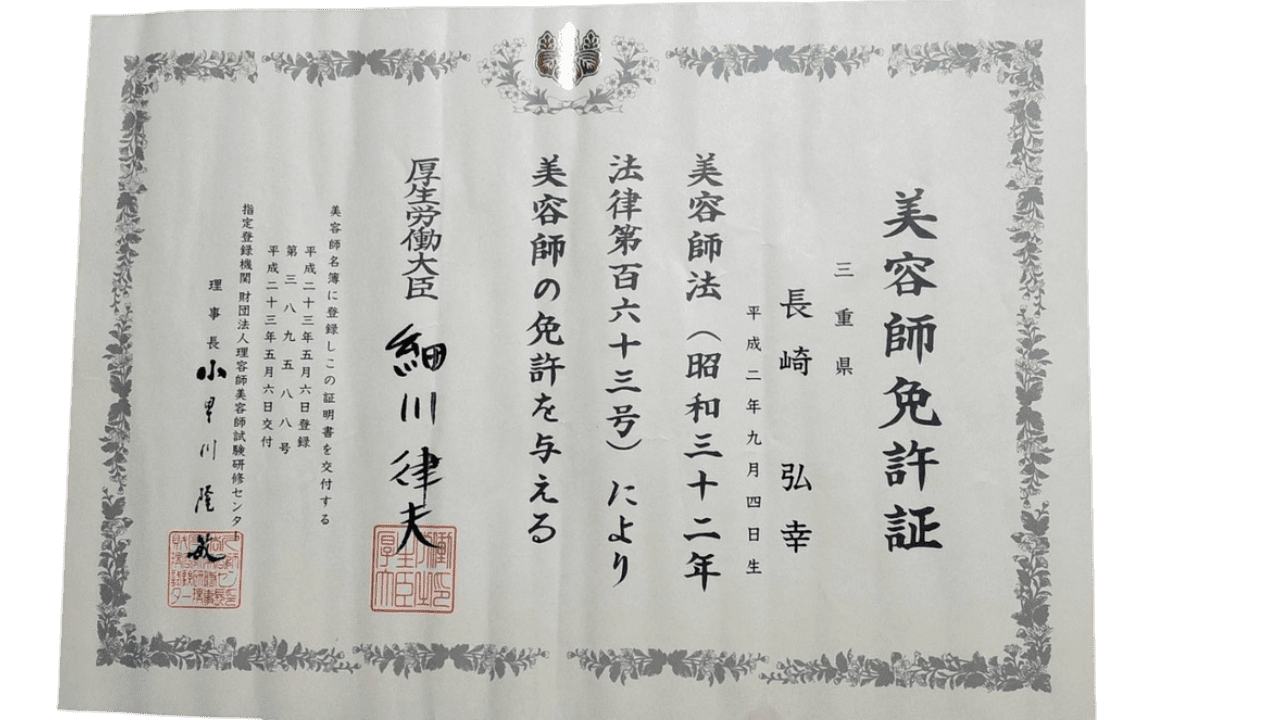 美容師免許証
三重県
長崎 弘幸
平成二年九月四日生
美容師法（昭和三十二年
法律第百六十三号）により
美容師の免許を与える
厚生労働大臣 細川律夫
美容師名簿に登録しこの証明書を交付する
平成二十三年五月六日登録
第三八九五八八号
平成二十三年五月六日交付
指定登録機関 財団法人理容師美容師試験研修センター
理事長 小早川隆敏